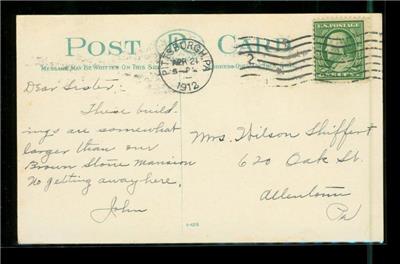 POST CARD
MESSAGE MAY BE WRITTEN ON THIS SIDE
PITTSBURGH, PA
APR 21
1912
Dear Sister,
These build-
ings are somewhat
larger than our
Brown Stone Mansion
No getting away here.
John
Mrs. Wilson Shiffert
620 Oak St.
Allentown
Pa